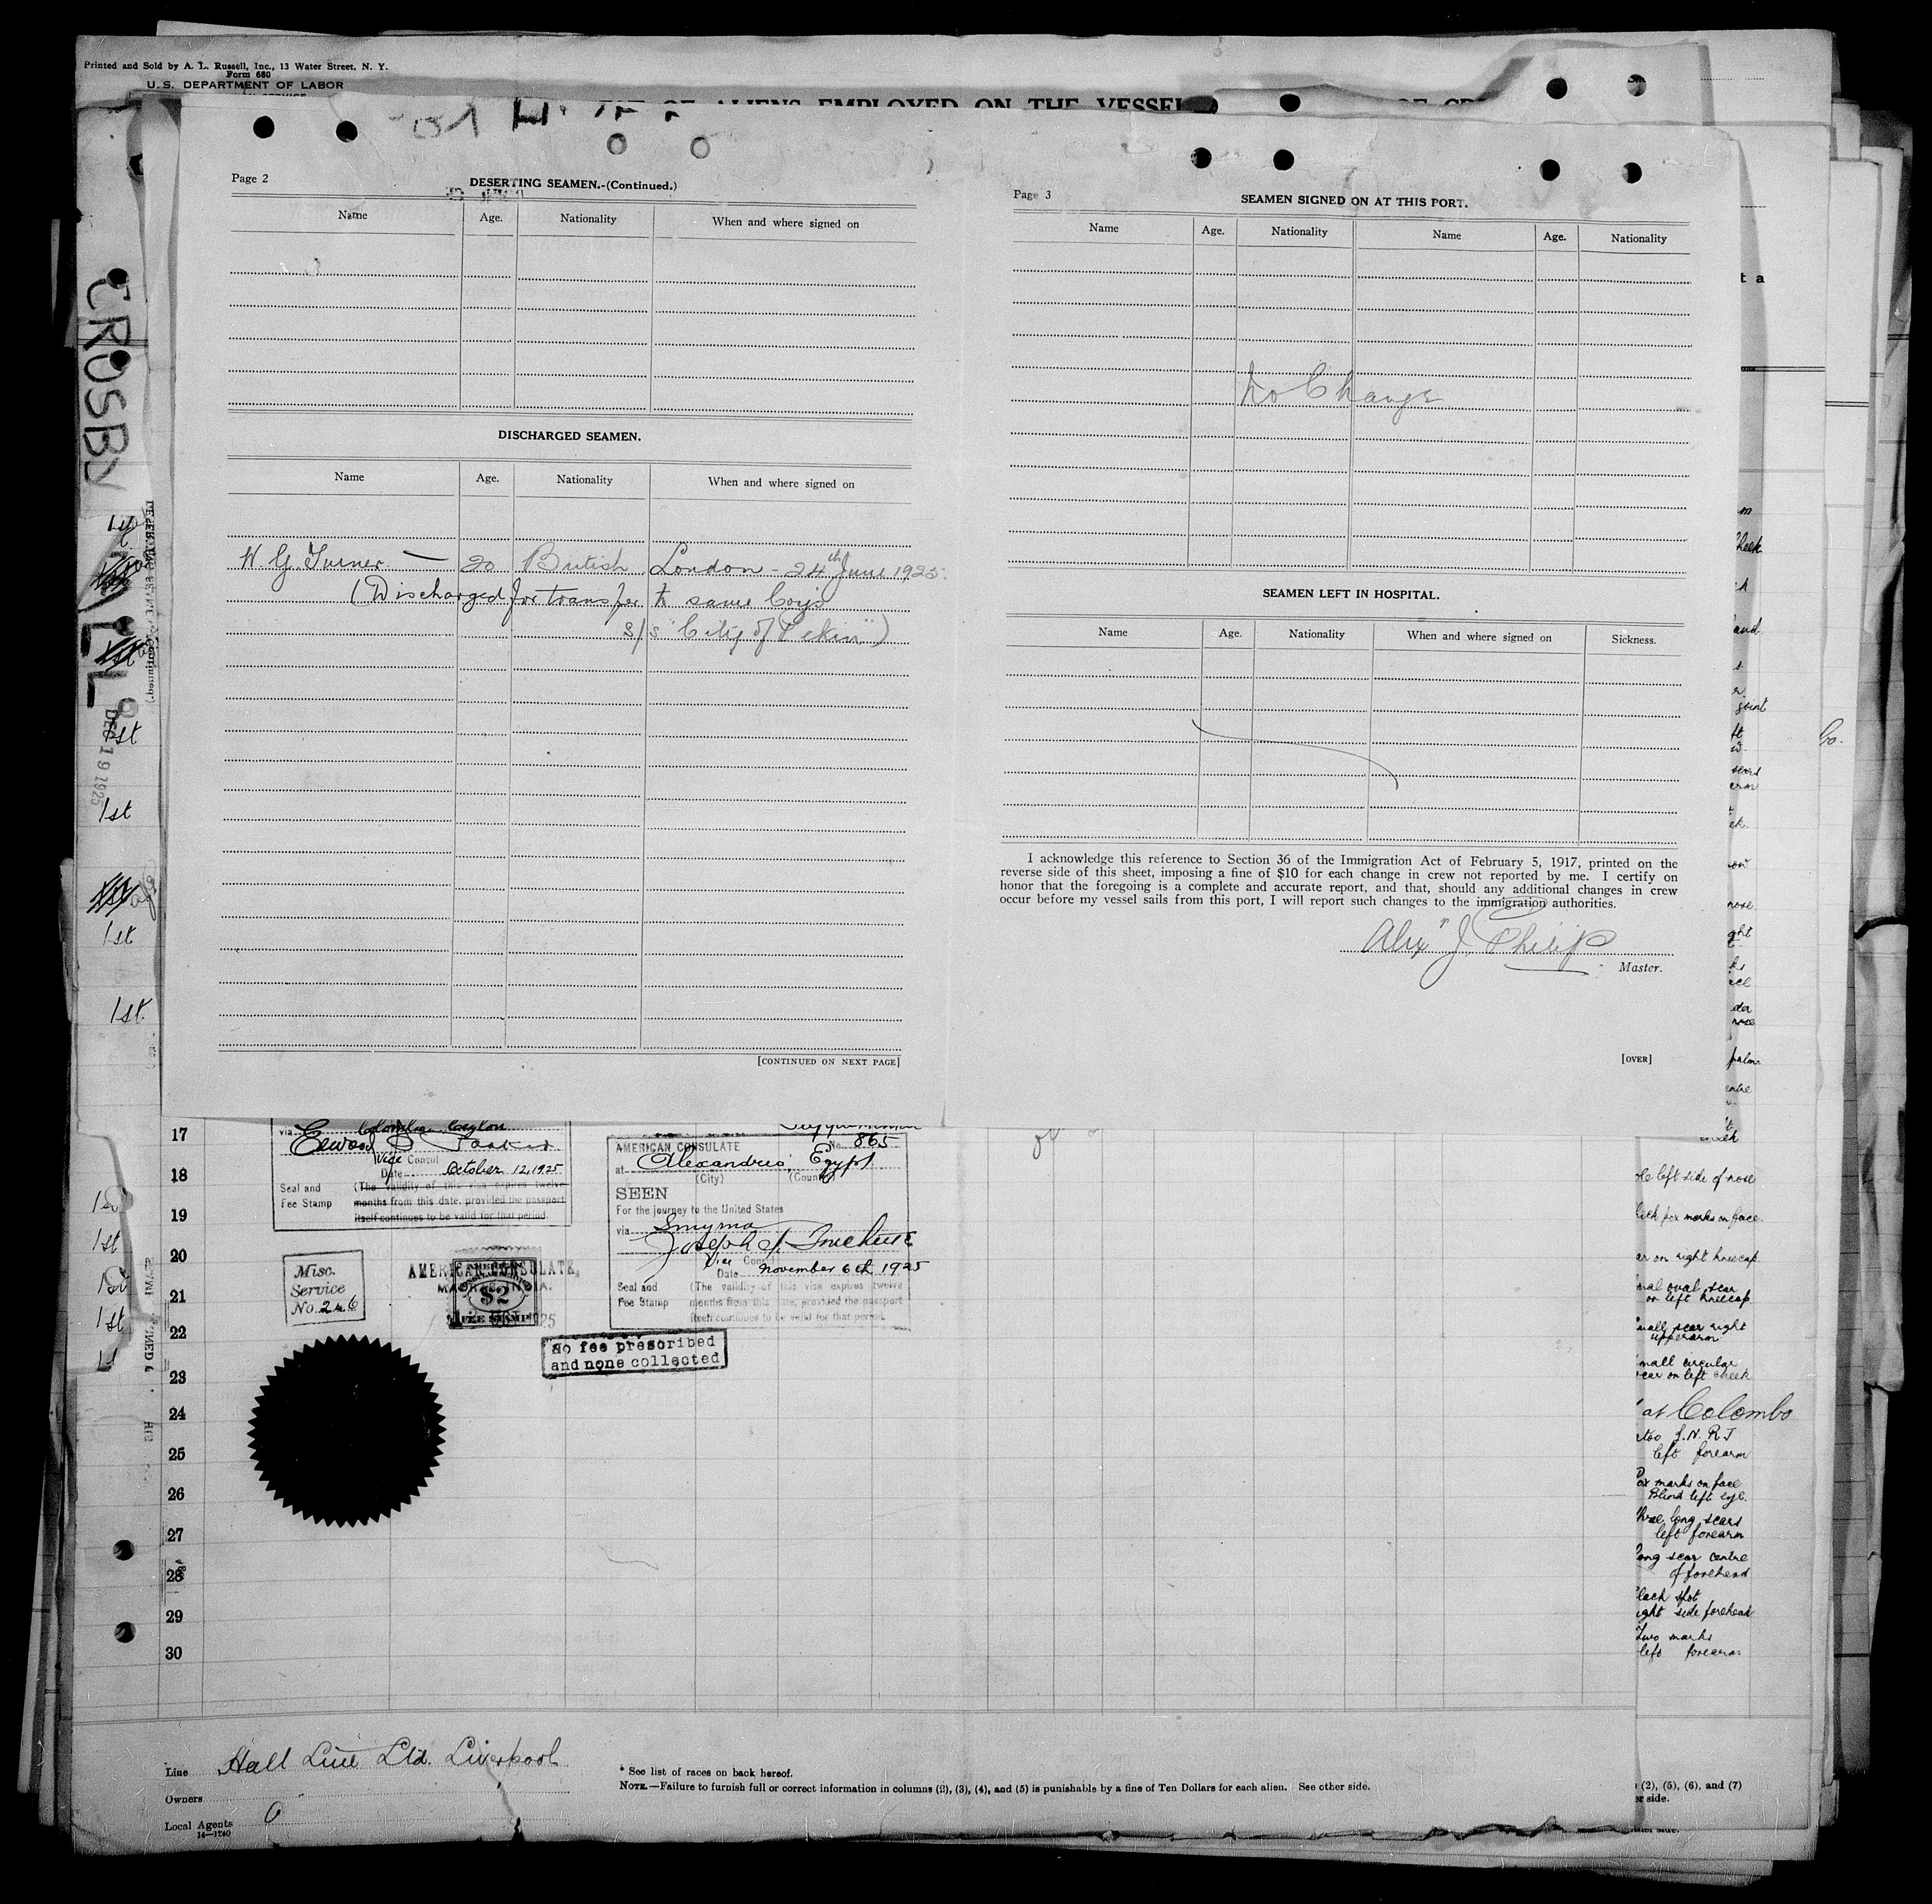 Printed and Sold by A. L. Russell, Inc., 13 Water Street, N. Y.
Form 680
U. S. DEPARTMENT OF LABOR
OF ALIENS EMPLOYED ON THE VESSEL
Page 2
DESERTING SEAMEN.-(Continued.)
Name Age. Nationality When and where signed on
DISCHARGED SEAMEN.
Name Age. Nationality When and where signed on
W. G. Turner — 20 British London - 24th June 1925.
(Discharged for transfer to same Coy's
s/s "City of Pekin")
[CONTINUED ON NEXT PAGE]
Page 3
SEAMEN SIGNED ON AT THIS PORT.
Name Age. Nationality Name Age. Nationality
No Change
SEAMEN LEFT IN HOSPITAL.
Name Age. Nationality When and where signed on Sickness.
I acknowledge this reference to Section 36 of the Immigration Act of February 5, 1917, printed on the
reverse side of this sheet, imposing a fine of $10 for each change in crew not reported by me. I certify on
honor that the foregoing is a complete and accurate report, and that, should any additional changes in crew
occur before my vessel sails from this port, I will report such changes to the immigration authorities.
Alexr J. Philip
Master.
[OVER]
CROSBY
HALL
DEC 19 1925
1st
1st
1st
1st
1st
1st
1st
1st
1st
17
18
19
20
21
22
23
24
25
26
27
28
29
30
via Colombo Ceylon
Vice Consul
Date October 12, 1925
Seal and (The validity of this visa expires twelve
Fee Stamp months from this date, provided the passport
itself continues to be valid for that period.
Misc.
Service
No. 246
AMERICAN CONSULATE,
$2
FEE STAMP
AMERICAN CONSULATE No. 865
at Alexandria, Egypt
(City) (Country)
SEEN
For the journey to the United States
via Smyrna
Vice Consul
Date November 6th 1925
Seal and (The validity of this visa expires twelve
Fee Stamp months from this date, provided the passport
itself continues to be valid for that period.
No fee prescribed
and none collected
left side of nose
pox marks on face
on right kneecap
oval scar
on left kneecap
small scar right
upperarm
small circular
scar on left cheek
at Colombo
J.N.R.J
left forearm
Pox marks on face
Blind left eye.
Three long scars
left forearm
long scar centre
of forehead
Black spot
right side forehead
Two marks
left forearm
Line Hall Line Ltd. Liverpool
Owners
Local Agents
14—1240
* See list of races on back hereof.
NOTE.—Failure to furnish full or correct information in columns (2), (3), (4), and (5) is punishable by a fine of Ten Dollars for each alien. See other side.
(2), (5), (6), and (7)
side.